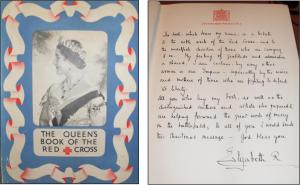 THE QUEEN'S
BOOK OF THE
RED CROSS
BUCKINGHAM PALACE
This book, which bears my name, is
to the work of the Red Cross, and to
the unselfish devotion of those who are carrying
it on. My feeling of gratitude and admiration
is shared, I am certain, by every other
woman in our Empire - especially by the wives
and mothers of those who are fighting to defend
its liberty.
All you who buy my book, as well as the
distinguished authors and artists who prepared it,
are helping forward the great work of mercy
on the battlefield, to all of you I would send
this Christmas message - God bless you
Elizabeth R